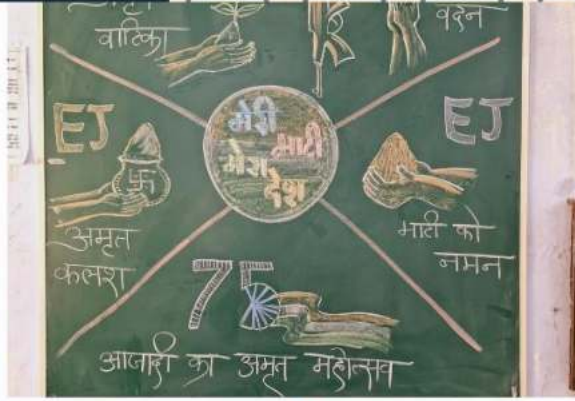 वाटिका
वंदन
EJ
EJ
मेरी
माटी
मेरा
देश
अमृत
कलश
माटी को
नमन
75
आजादी का अमृत महोत्सव